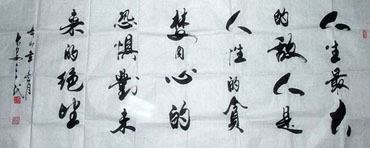 人生最大
的敌人是
人性的貪
婪内心的
恐惧對未
来的绝望